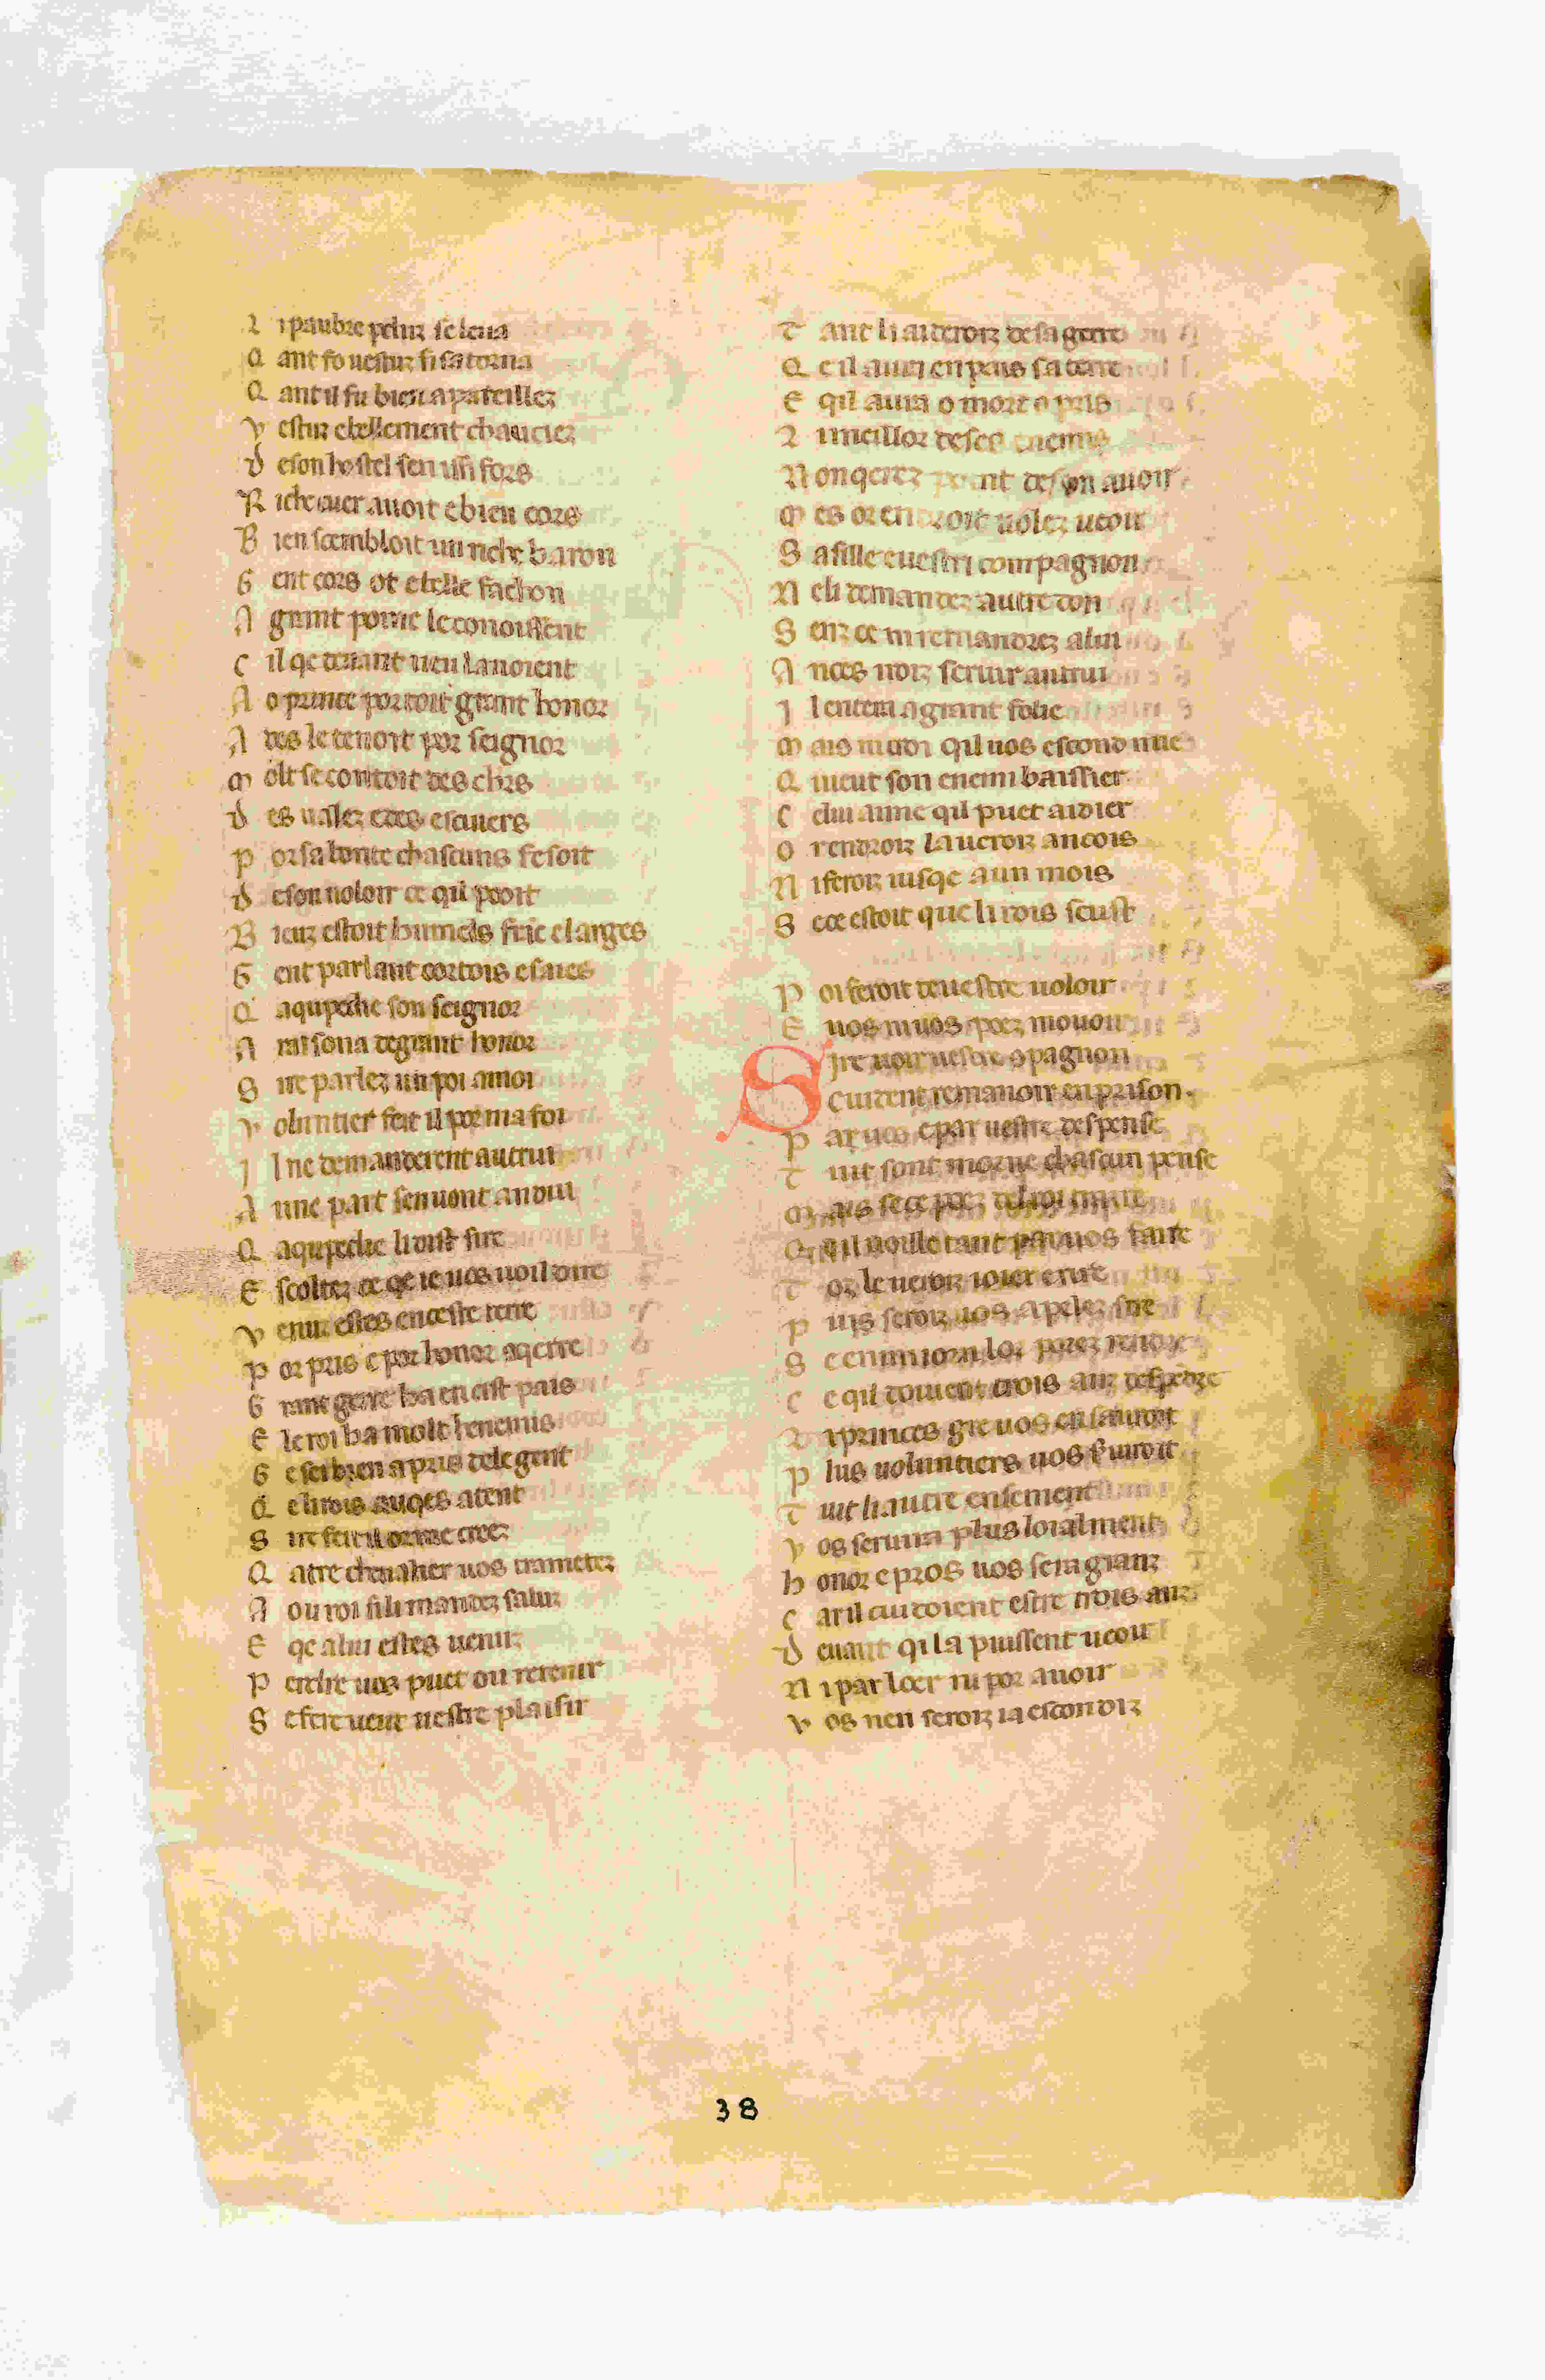 L i paubre pelur se leua
Q ant fo uestuz si satorna
Q ant il fu bien apareillez
V estuz e bellement chauciez
D e son hostel sen issi fors
R iche cuer auoit e bien cors
B ien scembloit un riche baron
G ent cors ot e belle fachon
A grant poine le conoissent
C il qe deuant ueu lauoient
A o prince portoit grant honor
A des le tenoit por seignor
M olt se contoit des chrs
D es uaslez e des escuiers
P or sa bonte chascuns fesoit
D e son uoloir ce qil pooit
B ieuz estoit humels fric e larges
G ent parlant cortois e saies
Q aqupeche son seignor
A raisona de grant honor
S ire parlez un poi a moi
V oluntier feit il por ma foi
I l ne demanderent autrui
A une part senuont andui
Q aqupeche li dist sire
E scoltez ce qe ie uos uoil dire
V enuz estes en ceste terre
P or pris e por honor aqerre
G rant gerre ha en cist pais
E le roi ha molt henemis
G e sei bien apris de le gent
Q e li rois auqes atent
S ire feit il or me creez
Q atre cheualier uos trametez
A ou roi si li mandez saluz
E qe a lui estes uenuz
P erdre uos puet ou retenir
S e fere ueut uestre plaisir
T ant li aideroiz de sa gerre
Q e il aura en peis sa terre
E qil aura o mort o pris
L i meillor de ses enemis
N on qerez point de son auoir
M es orendroit uolez ueoir
S a fille e uestri compagnon
N e li demandez autre don
S enz ce ni remandrez a lui
A nces uoiz seruir autrui
I l entera a grant folie
M ais ni uoi qil uos escondiue
Q i ueut son enemi baissier
C elui aime qil puet aidier
O rendroiz laueroiz ancois
N i feroiz iusqe a un mois
S e ce estoit que li rois seust
P oi feroit de uestre uoloir
E uos ni uos poez mouoir
S ire uoir uestre 9pagnon
C uident remanoir en prison
P ar uos e par uestre despense
T uit sont morne chascun pense
M ais se ce poez del roi traire
Q il uoille tant par uos faire
T oz le ueroiz ioier e rire
P uis seroiz uos apelez sire
S e en un iorn lor porez rendre
C e qil douient trois anz despendre
L i princes gre uos en sauront
P lus uoluntiers uos seruiroit
T uit li autre ensement
V os seruira plus loialment
H onor e pros uos sera granz
C ar il cuidoient estre trois anz
D euant qi la puissent ueoir
N i par loer ni por auoir
V os nen seroiz ia escondiz
38